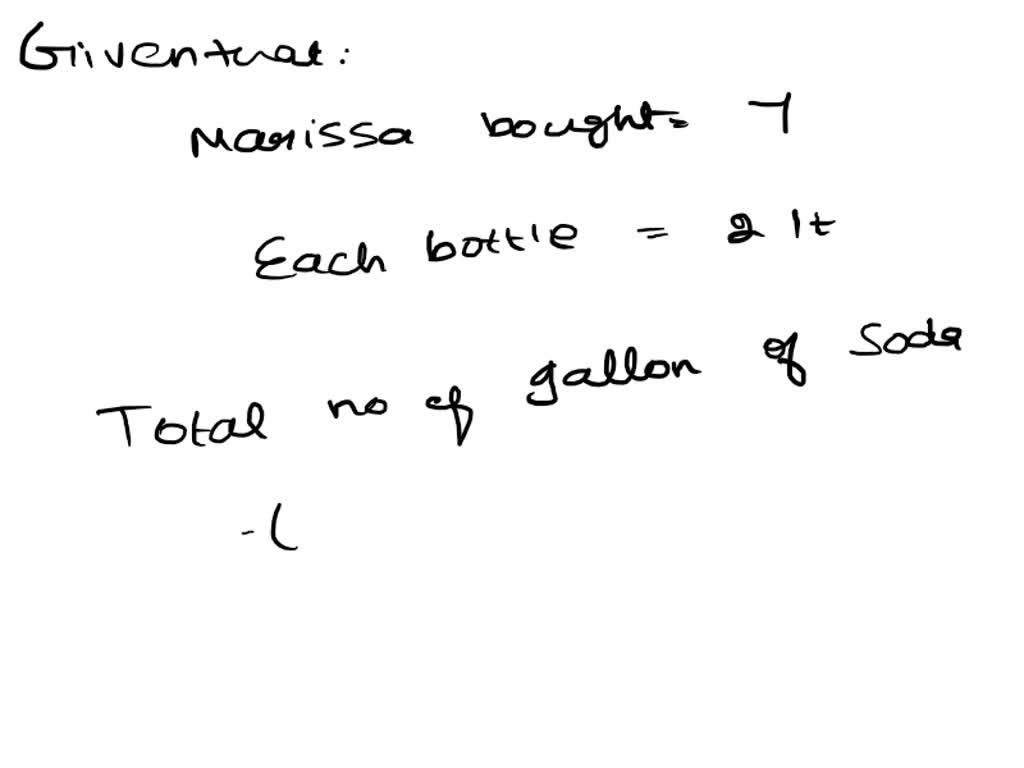 Given that:
Marissa bought = 7
Each bottle = 2 lt
Total no of gallon of Soda
= (